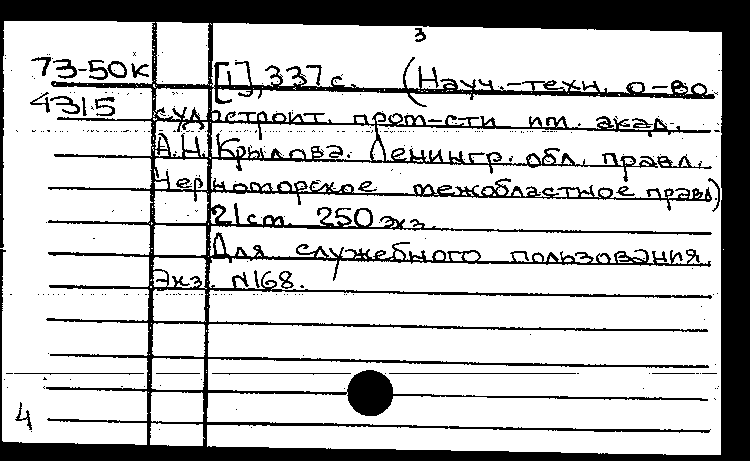 3
73-50к [1], 337 с. (Науч.-техн. о-во
4315 судостроит. пром-сти им. акад.
А.Н. Крылова. Ленингр. обл. правл.
Черноморское межобластное правл)
21 см. 250 экз.
Для служебного пользования
Экз. N168.
4